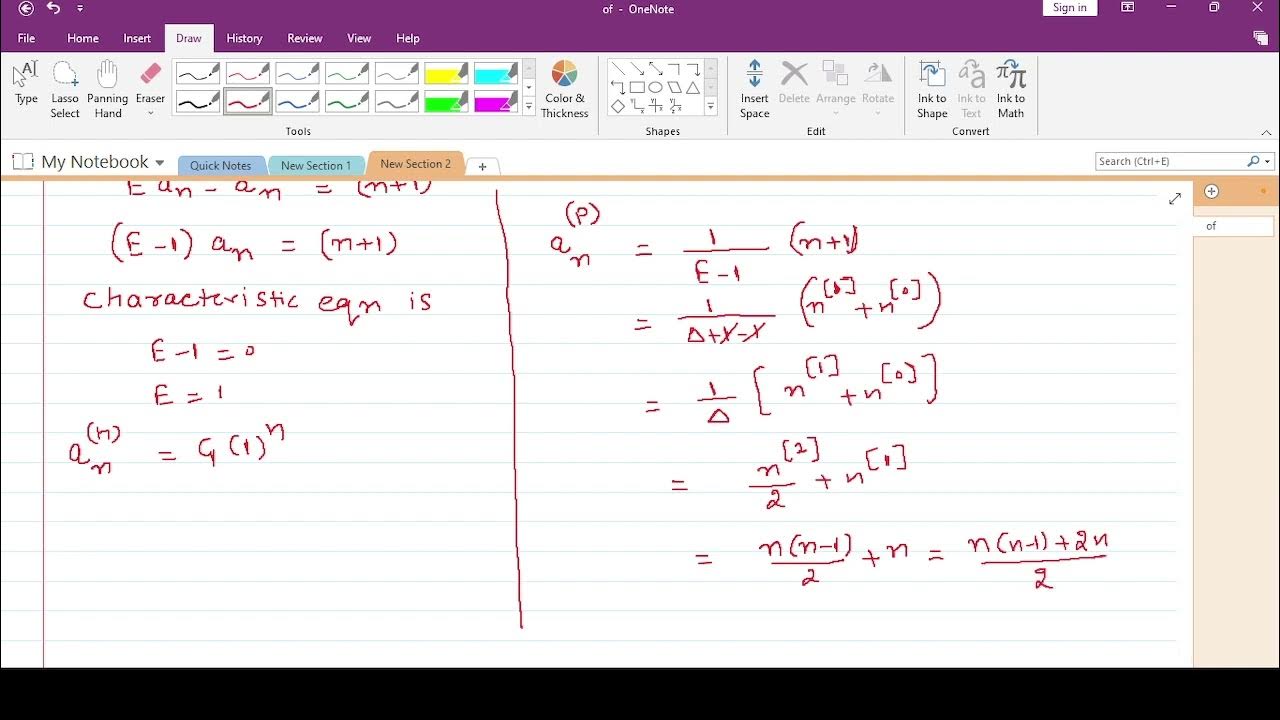 of - OneNote
Sign in
File Home Insert Draw History Review View Help
Type
Lasso Select
Panning Hand
Eraser
Color & Thickness
Insert Space
Delete
Arrange
Rotate
Ink to Shape
Ink to Text
Ink to Math
Tools
Shapes
Edit
Convert
My Notebook
Quick Notes
New Section 1
New Section 2
Search (Ctrl+E)
of
E aₙ - aₙ = (n+1)
(E-1) aₙ = (n+1)
characteristic eqn is
E-1 = 0
E = 1
aₙ^(h) = C₁(1)^n
aₙ^(P) = 1/(E-1) (n+1)
= 1/(Δ+1-1) (n^[1] + n^[0])
= 1/Δ [n^[1] + n^[0]]
= n^[2]/2 + n^[1]
= n(n-1)/2 + n = (n(n-1)+2n)/2